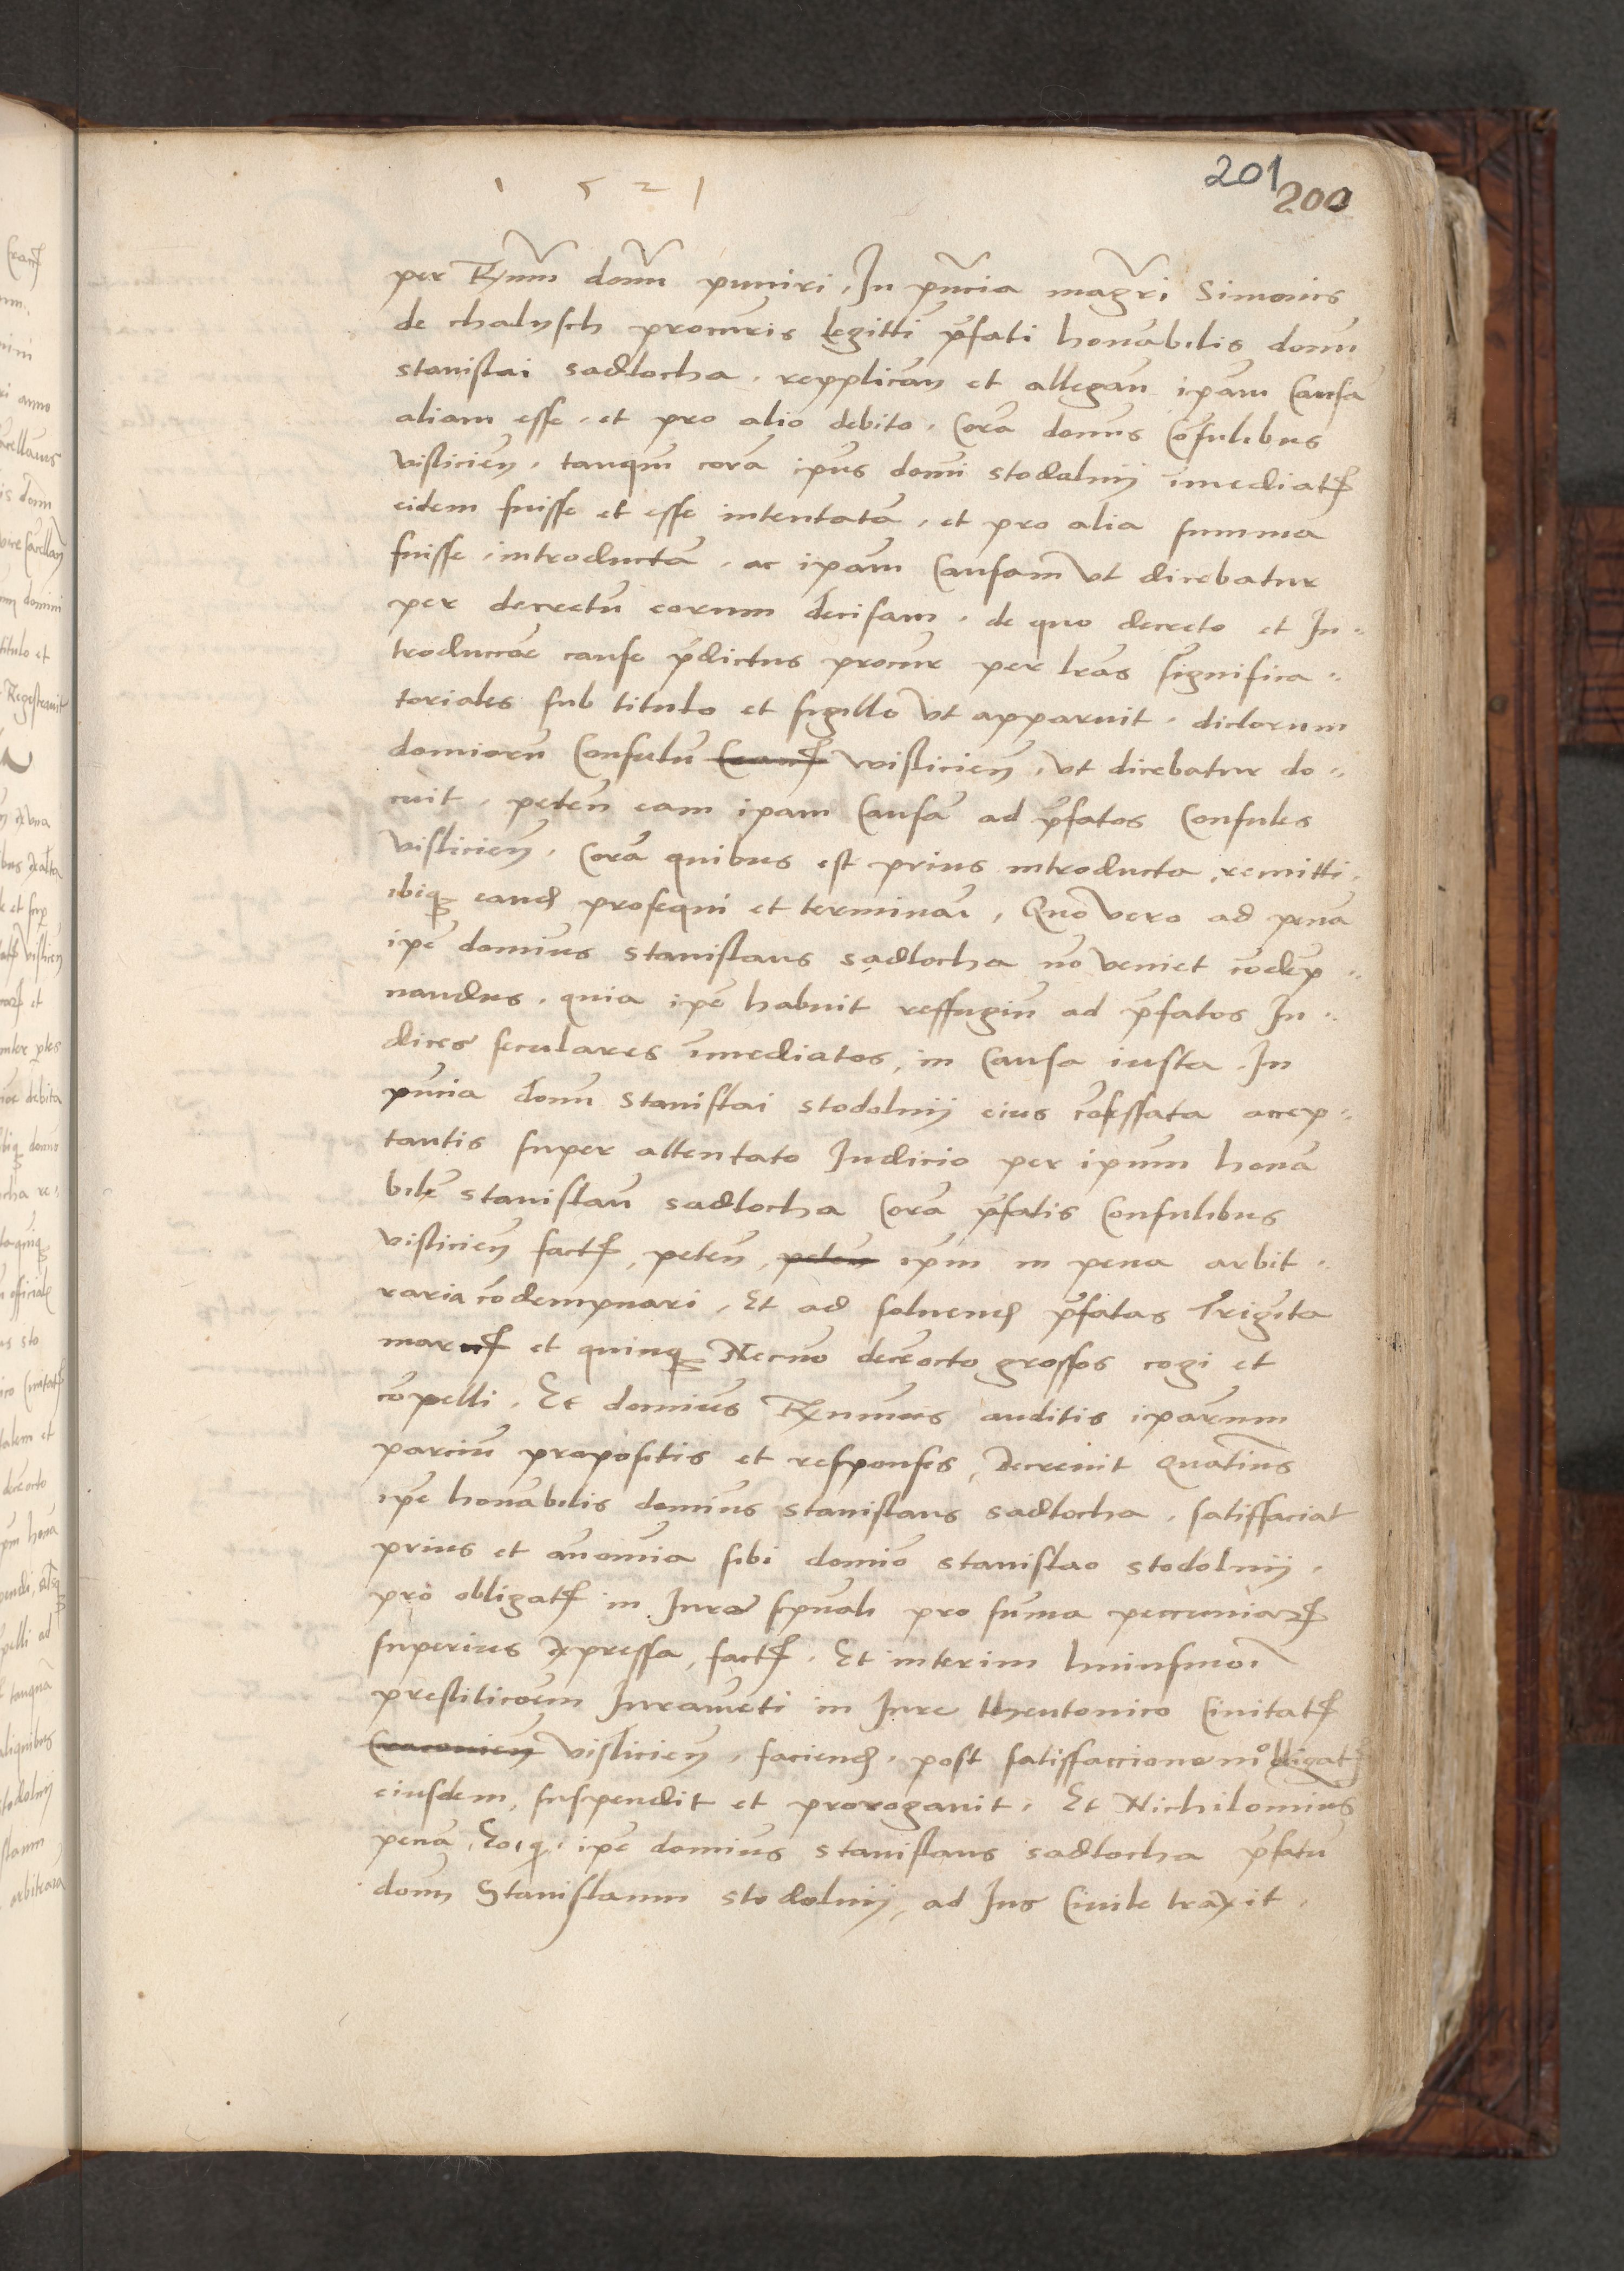 1 5 2 1
201
200
per R̃mm domũ puniri, In pñcia magr̃i Simonis
de chalysch procur̃is legittĩ p̃fati honãbilis domĩ
stanislai sadlocha, repplicañ et allegañ ip̃am Causã
aliam esse, et pro alio debito, Corã domĩs Cõsulibus
visliciẽn, tanqm̃ corã ip̃ius domĩ stodolnij ĩmediat̃
eidem fuisse et esse intentatã, et pro alia summa
fuisse introductã, ac ip̃am Causam ut dicebatur
per decretũ eorum decisam, de quo decreto et In-
troducc̃oe cause p̃dictus procur̃ per lr̃as significa-
toriales sub titulo et sigillo ut apparuit, dictorum
domiorũ Consulũ visliciẽn, ut dicebatur do-
cuit, petẽn eam ip̃am Causã ad p̃fatos Consules
visliciẽn, Corã quibus est prius introducta, remitti,
ibiq; eand̃ prosequi et terminari, Quo vero ad penã
ip̃e domĩus stanislaus sadlocha nõ veniet cõdẽp-
nandus, quia ip̃e habuit reffugiũ ad p̃fatos Iu-
dices seculares ĩmediatos, in Causa iusta, In
pñcia domĩ Stanislai stodolnij eius cõfessata accep-
tantis super attentato Iudicio per ip̃um honã
bilẽ stanislaũ sadlocha Corã p̃fatis Consulibus
visliciẽn fact̃, petẽn, petẽn ip̃m in pena arbit-
raria cõdempnari, Et ad soluend̃ p̃fatas Triginta
marc̃ et quinq; Necnõ decẽocto grossos cogi et
cõpelli, Et domĩus R̃mus auditis ip̃arum
parciũ propositis et responsis, decreuit Quatĩus
ip̃e honãbilis domĩus stanislaus sadlocha, satisfaciat
prius et anõmia sibi domĩo stanislao stodolnij,
pro obligat̃ in Iure spũali pro sũma pecuniar̃
superius expressa, fact̃, Et interim huiusmõi
prestitic̃oem Iuramẽti in Iure theutonico Ciuitat̃
Cracouiẽn visliciẽn, faciend̃, post satisfaccionem obligat̃
eiusdem, suspendit et prorogauit, Et Nichilomĩus
penã, Eo, q̃, ip̃e domĩus stanislaus sadlocha p̃fatũ
domĩ Stanislaum stodolnij, ad Ius Ciuile traxit,